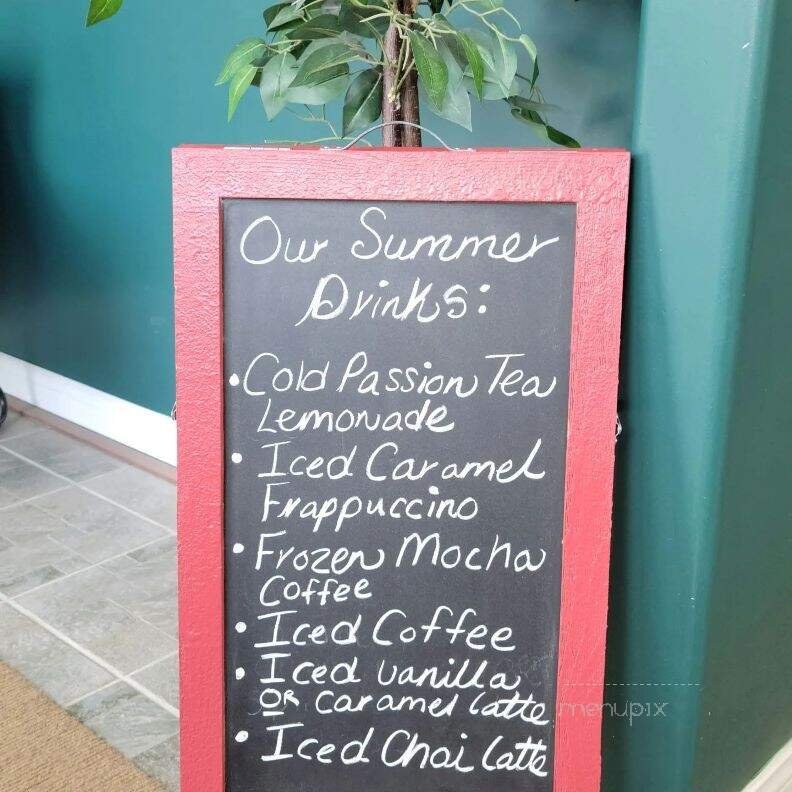 Our Summer
Drinks:
• Cold Passion Tea
Lemonade
• Iced Caramel
Frappuccino
• Frozen Mocha
Coffee
• Iced Coffee
• Iced vanilla
OR caramel latte
• Iced Chai Latte
menupix